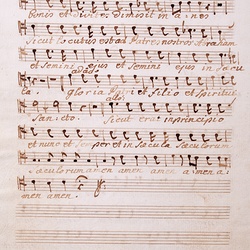 bonis et divites dimisit inanes
sicut locutus est ad Patres nostros Abraham
et semini ejus et semini ejus in saecu
la. gloria Patri et Filio et Spiritui
Sancto. Sicut erat in principio
et nunc et semper et in saecula saeculorum
saeculorum amen amen amen ama.
men amen.